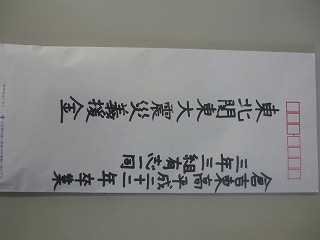 東北関東大震災義援金
倉吉東高平成二十二年卒業
三年三組有志一同